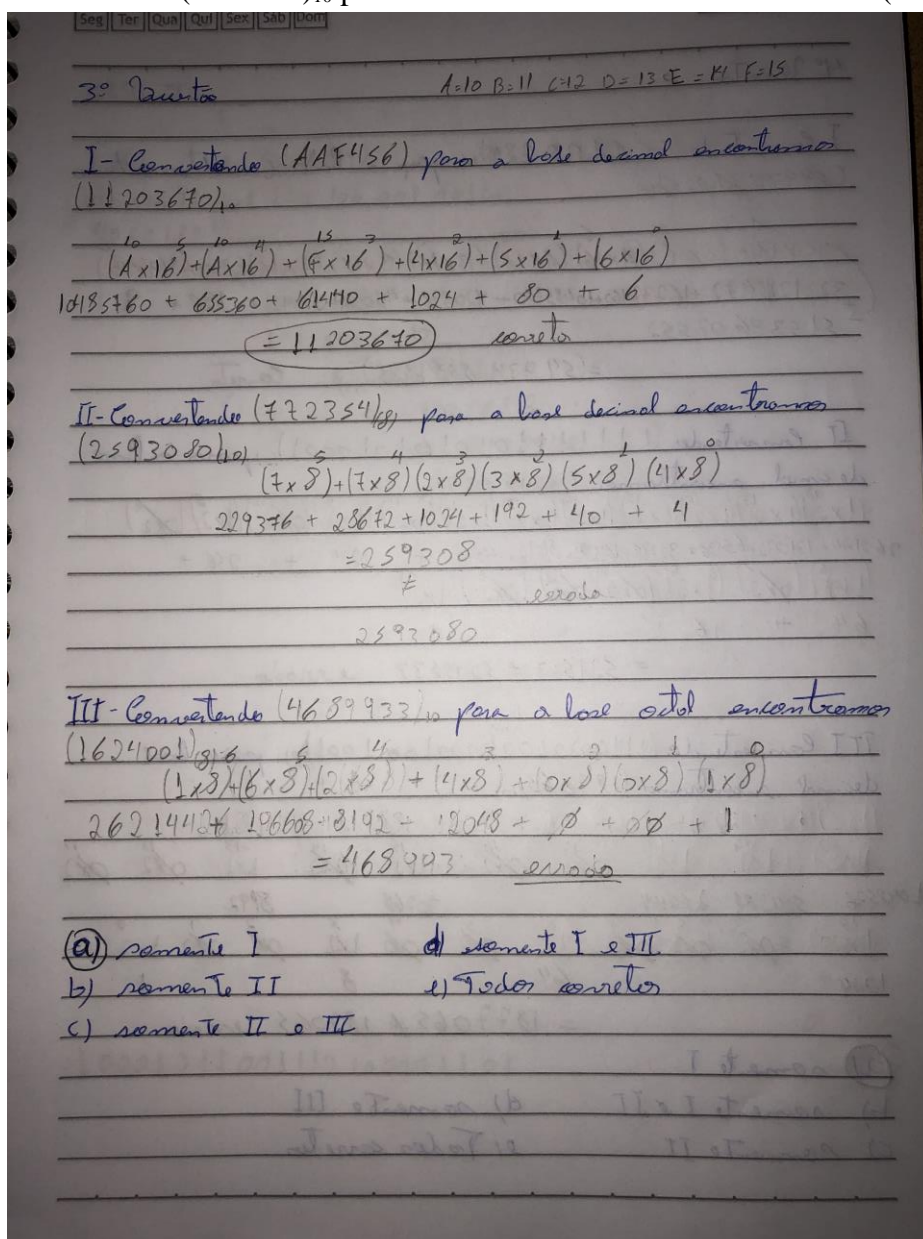 Seg Ter Qua Qui Sex Sáb Dom
3º Questão A=10 B=11 C=12 D=13 E=14 F=15
I- Convertendo (AAF456) para a base decimal encontramos
(11203670)₁₀
10 5 10 4 15 3 2 1 0
(A x 16) + (A x 16) + (F x 16) + (4x16) + (5 x 16) + (6 x 16)
10485760 + 655360 + 61440 + 1024 + 80 + 6
= 11203670 correto
II- Convertendo (772354)(8) para a base decimal encontramos
(2593080)(10)
5 4 3 2 1 0
(7 x 8) + (7 x 8) (2 x 8) (3 x 8) (5 x 8) (4 x 8)
229376 + 28672 + 1024 + 192 + 40 + 4
= 259308
≠ errado
2593080
III- Convertendo (4689933)₁₀ para a base octal encontramos
(1624001)(8) 6 5 4 3 2 1 0
(1x8)+(6x8)+(2x8) + (4x8) + (0x8) (0x8) (1x8)
262144 + 196608 + 8192 + 2048 + ø + ø + 1
= 468993 errado
a) somente I d) somente I e III
b) somente II e) Todos corretos
c) somente II e III